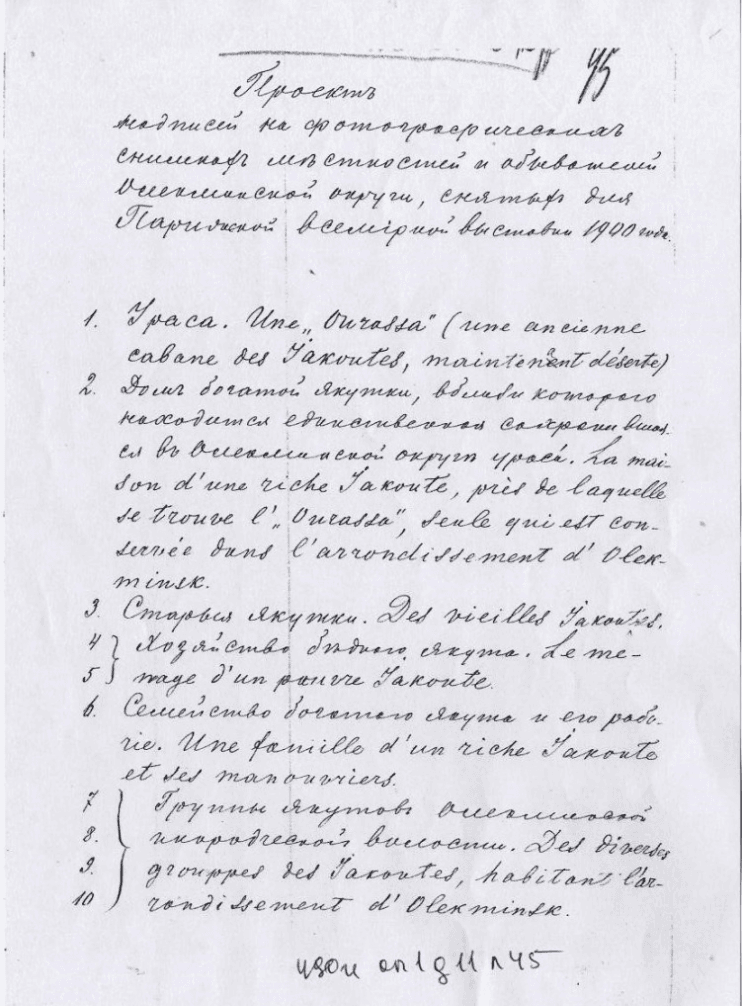 45
Проектъ
надписей на фотографическихъ
снимкахъ мѣстностей и обывателей
Олекминской округи, снятыхъ для
Парижской всемірной выставки 1900 года.
1. Ураса. Une „Ourassa“ (une ancienne
cabane des Jakoutes, maintenent déserte)
2. Домъ богатой якутки, вблизи котораго
находится единственная сохранившая-
ся въ Олекминской округѣ ураса́. La mai-
son d'une riche Jakoute, près de laquelle
se trouve l'„Ourassa“, seule qui est con-
servée dans l'arrondissement d'Olek-
minsk.
3. Старыя якутки. Des vieilles Jakoutes.
4 } Хозяйство бѣднаго якута. Le mé-
5 } nage d'un pauvre Jakoute.
6. Семейство богатаго якута и его рабо-
чіе. Une famille d'un riche Jakoute
et ses manouvriers.
7 Группы якутовъ Олекминской
8. инородческой волости. Des diverses
9. grouppes des Jakoutes, habitant l'ar-
10 rondissement d'Olekminsk.
оп 1 д 11 л 45